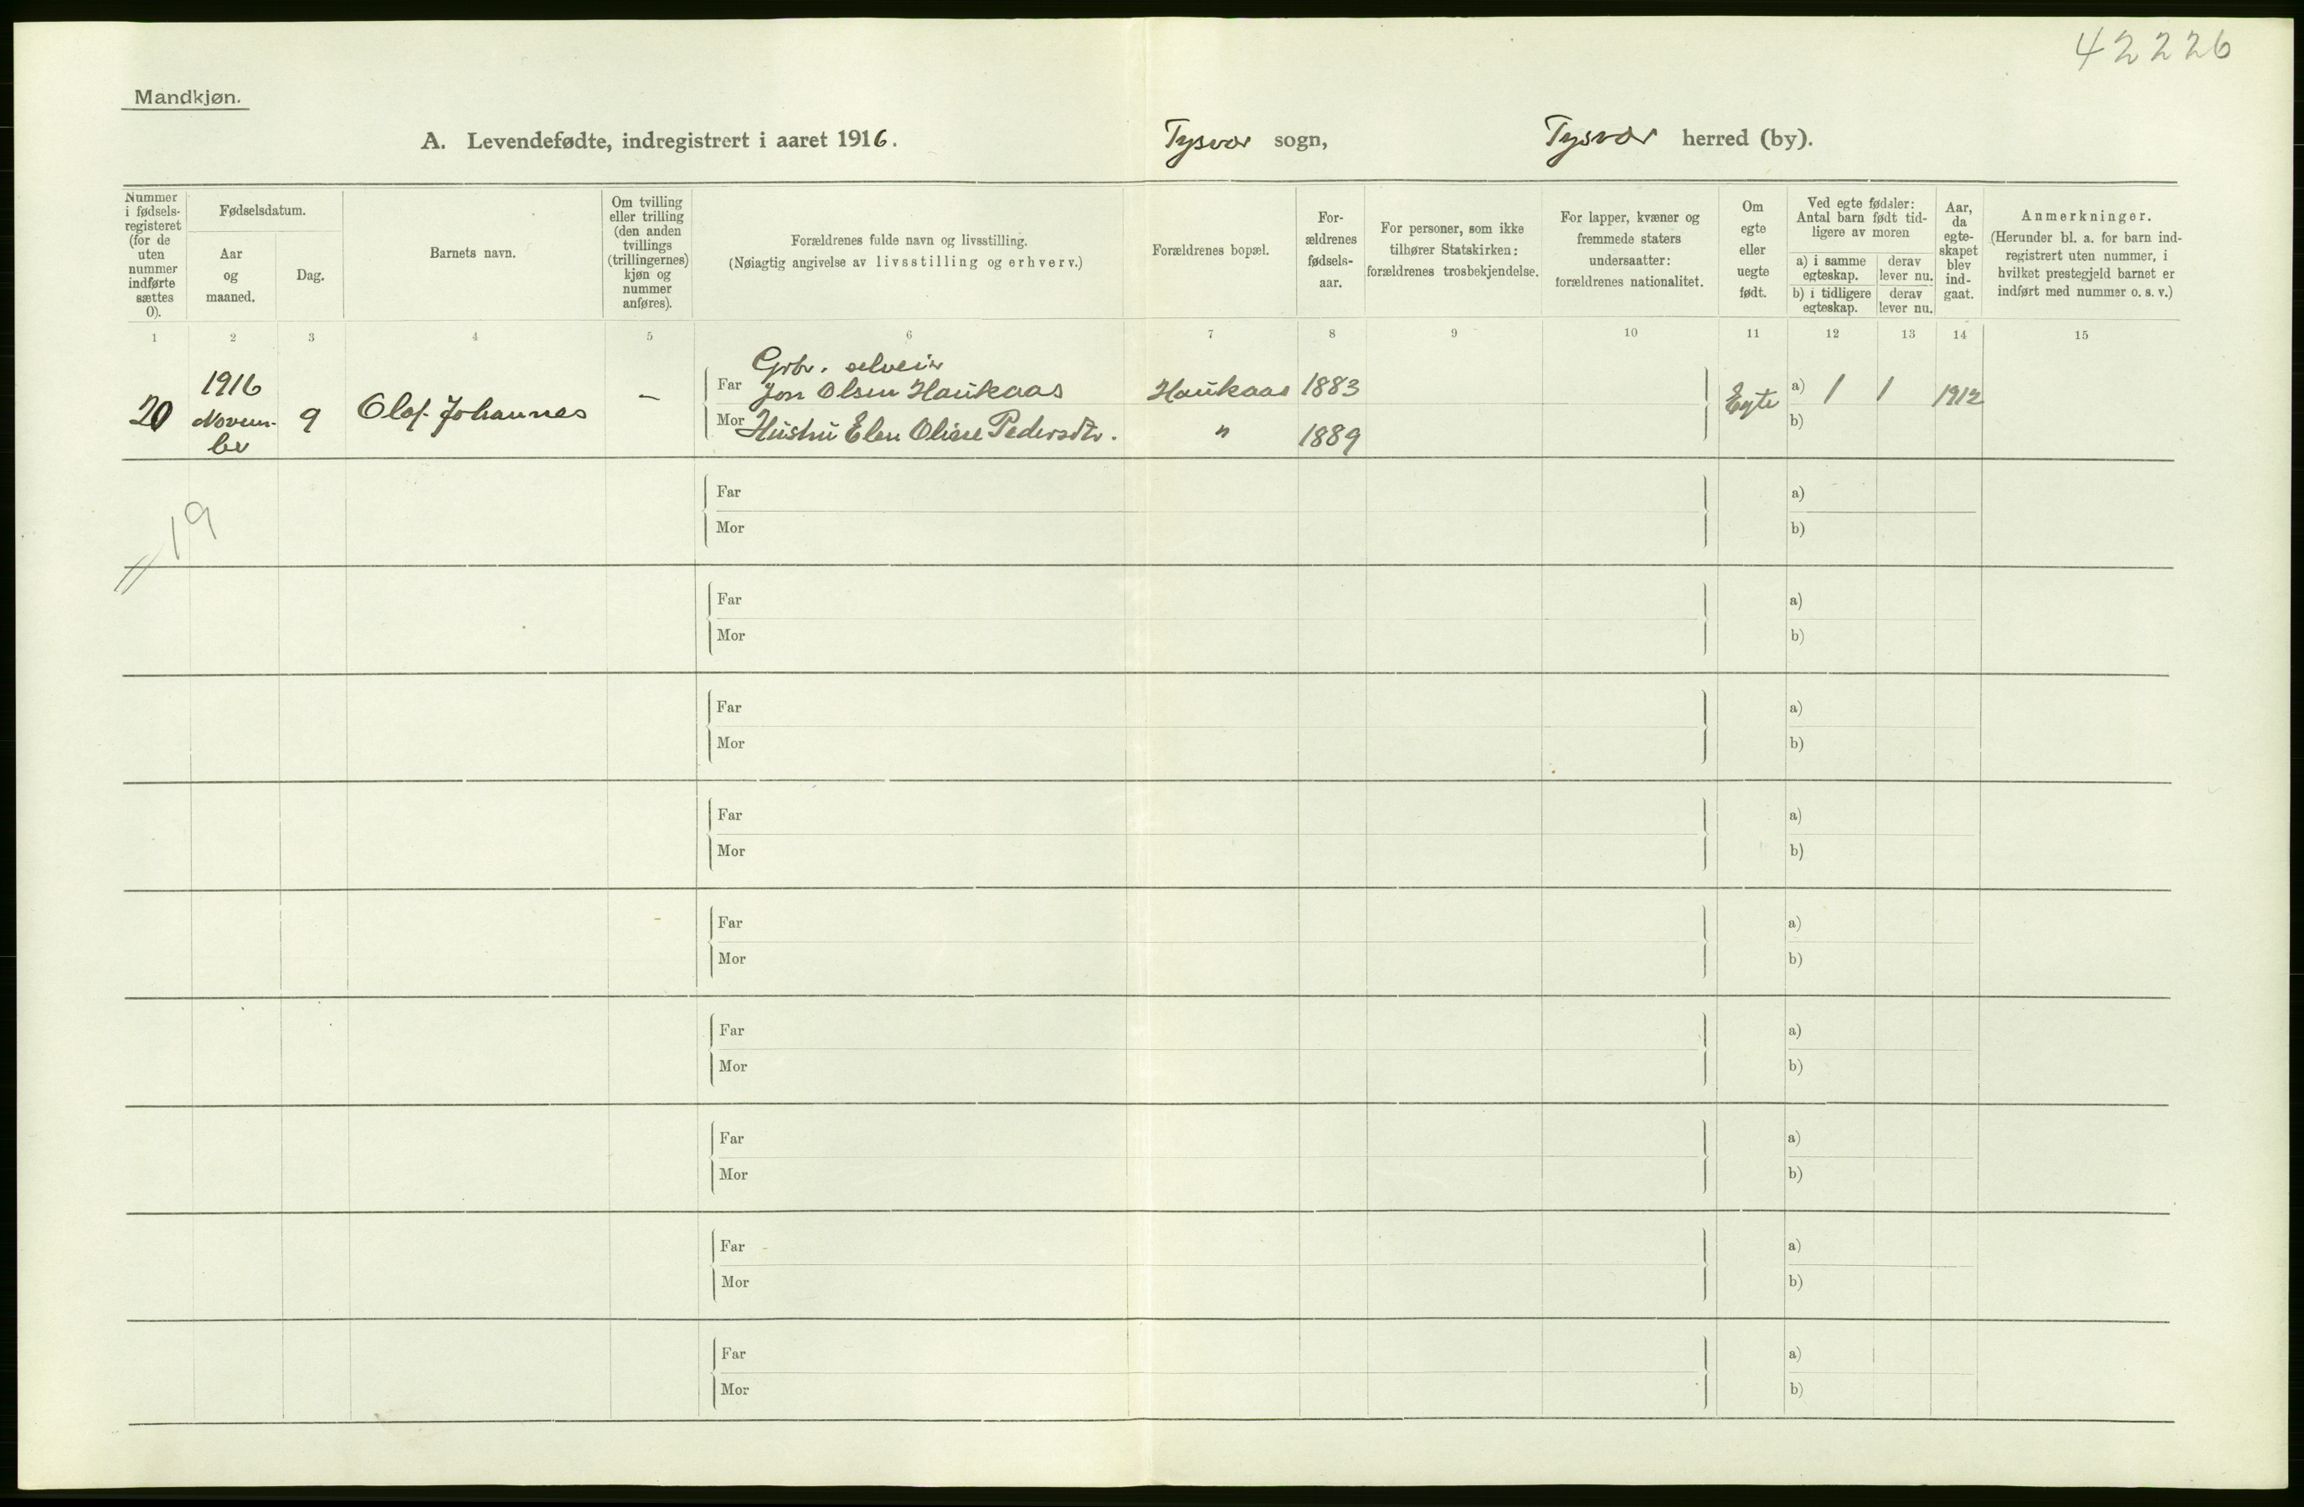 42226
Mandkjøn.
A. Levendefødte, indregistrert i aaret 1916. Tysvær sogn, Tysvær herred (by).
Nummer i fødselsregisteret (for de uten nummer indførte sættes 0).
Fødselsdatum.
Aar og maaned.
Dag.
Barnets navn.
Om tvilling eller trilling (den anden tvillings (trillingernes) kjøn og nummer anføres).
Forældrenes fulde navn og livsstilling.
(Nøiagtig angivelse av livsstilling og erhverv.)
Forældrenes bopæl.
Forældrenes fødselsaar.
For personer, som ikke tilhører Statskirken: forældrenes trosbekjendelse.
For lapper, kvæner og fremmede staters undersaatter: forældrenes nationalitet.
Om egte eller uegte født.
Ved egte fødsler: Antal barn født tidligere av moren
a) i samme egteskap.
derav lever nu.
b) i tidligere egteskap.
derav lever nu.
Aar, da egteskapet blev indgaat.
Anmerkninger.
(Herunder bl. a. for barn indregistrert uten nummer, i hvilket prestegjeld barnet er indført med nummer o. s. v.)
1 2 3 4 5 6 7 8 9 10 11 12 13 14 15
Grbr. selveier
1916 Far Jon Olsen Haukaas Haukaas 1883 a) 1 1 1912
20 Novem- 9 Olaf Johannes — Egte
ber Mor Hustru Elen Oline Pedersdtr. " 1889 b)
Far a)
19 Mor b)
Far a)
Mor b)
Far a)
Mor b)
Far a)
Mor b)
Far a)
Mor b)
Far a)
Mor b)
Far a)
Mor b)
Far a)
Mor b)
Far a)
Mor b)